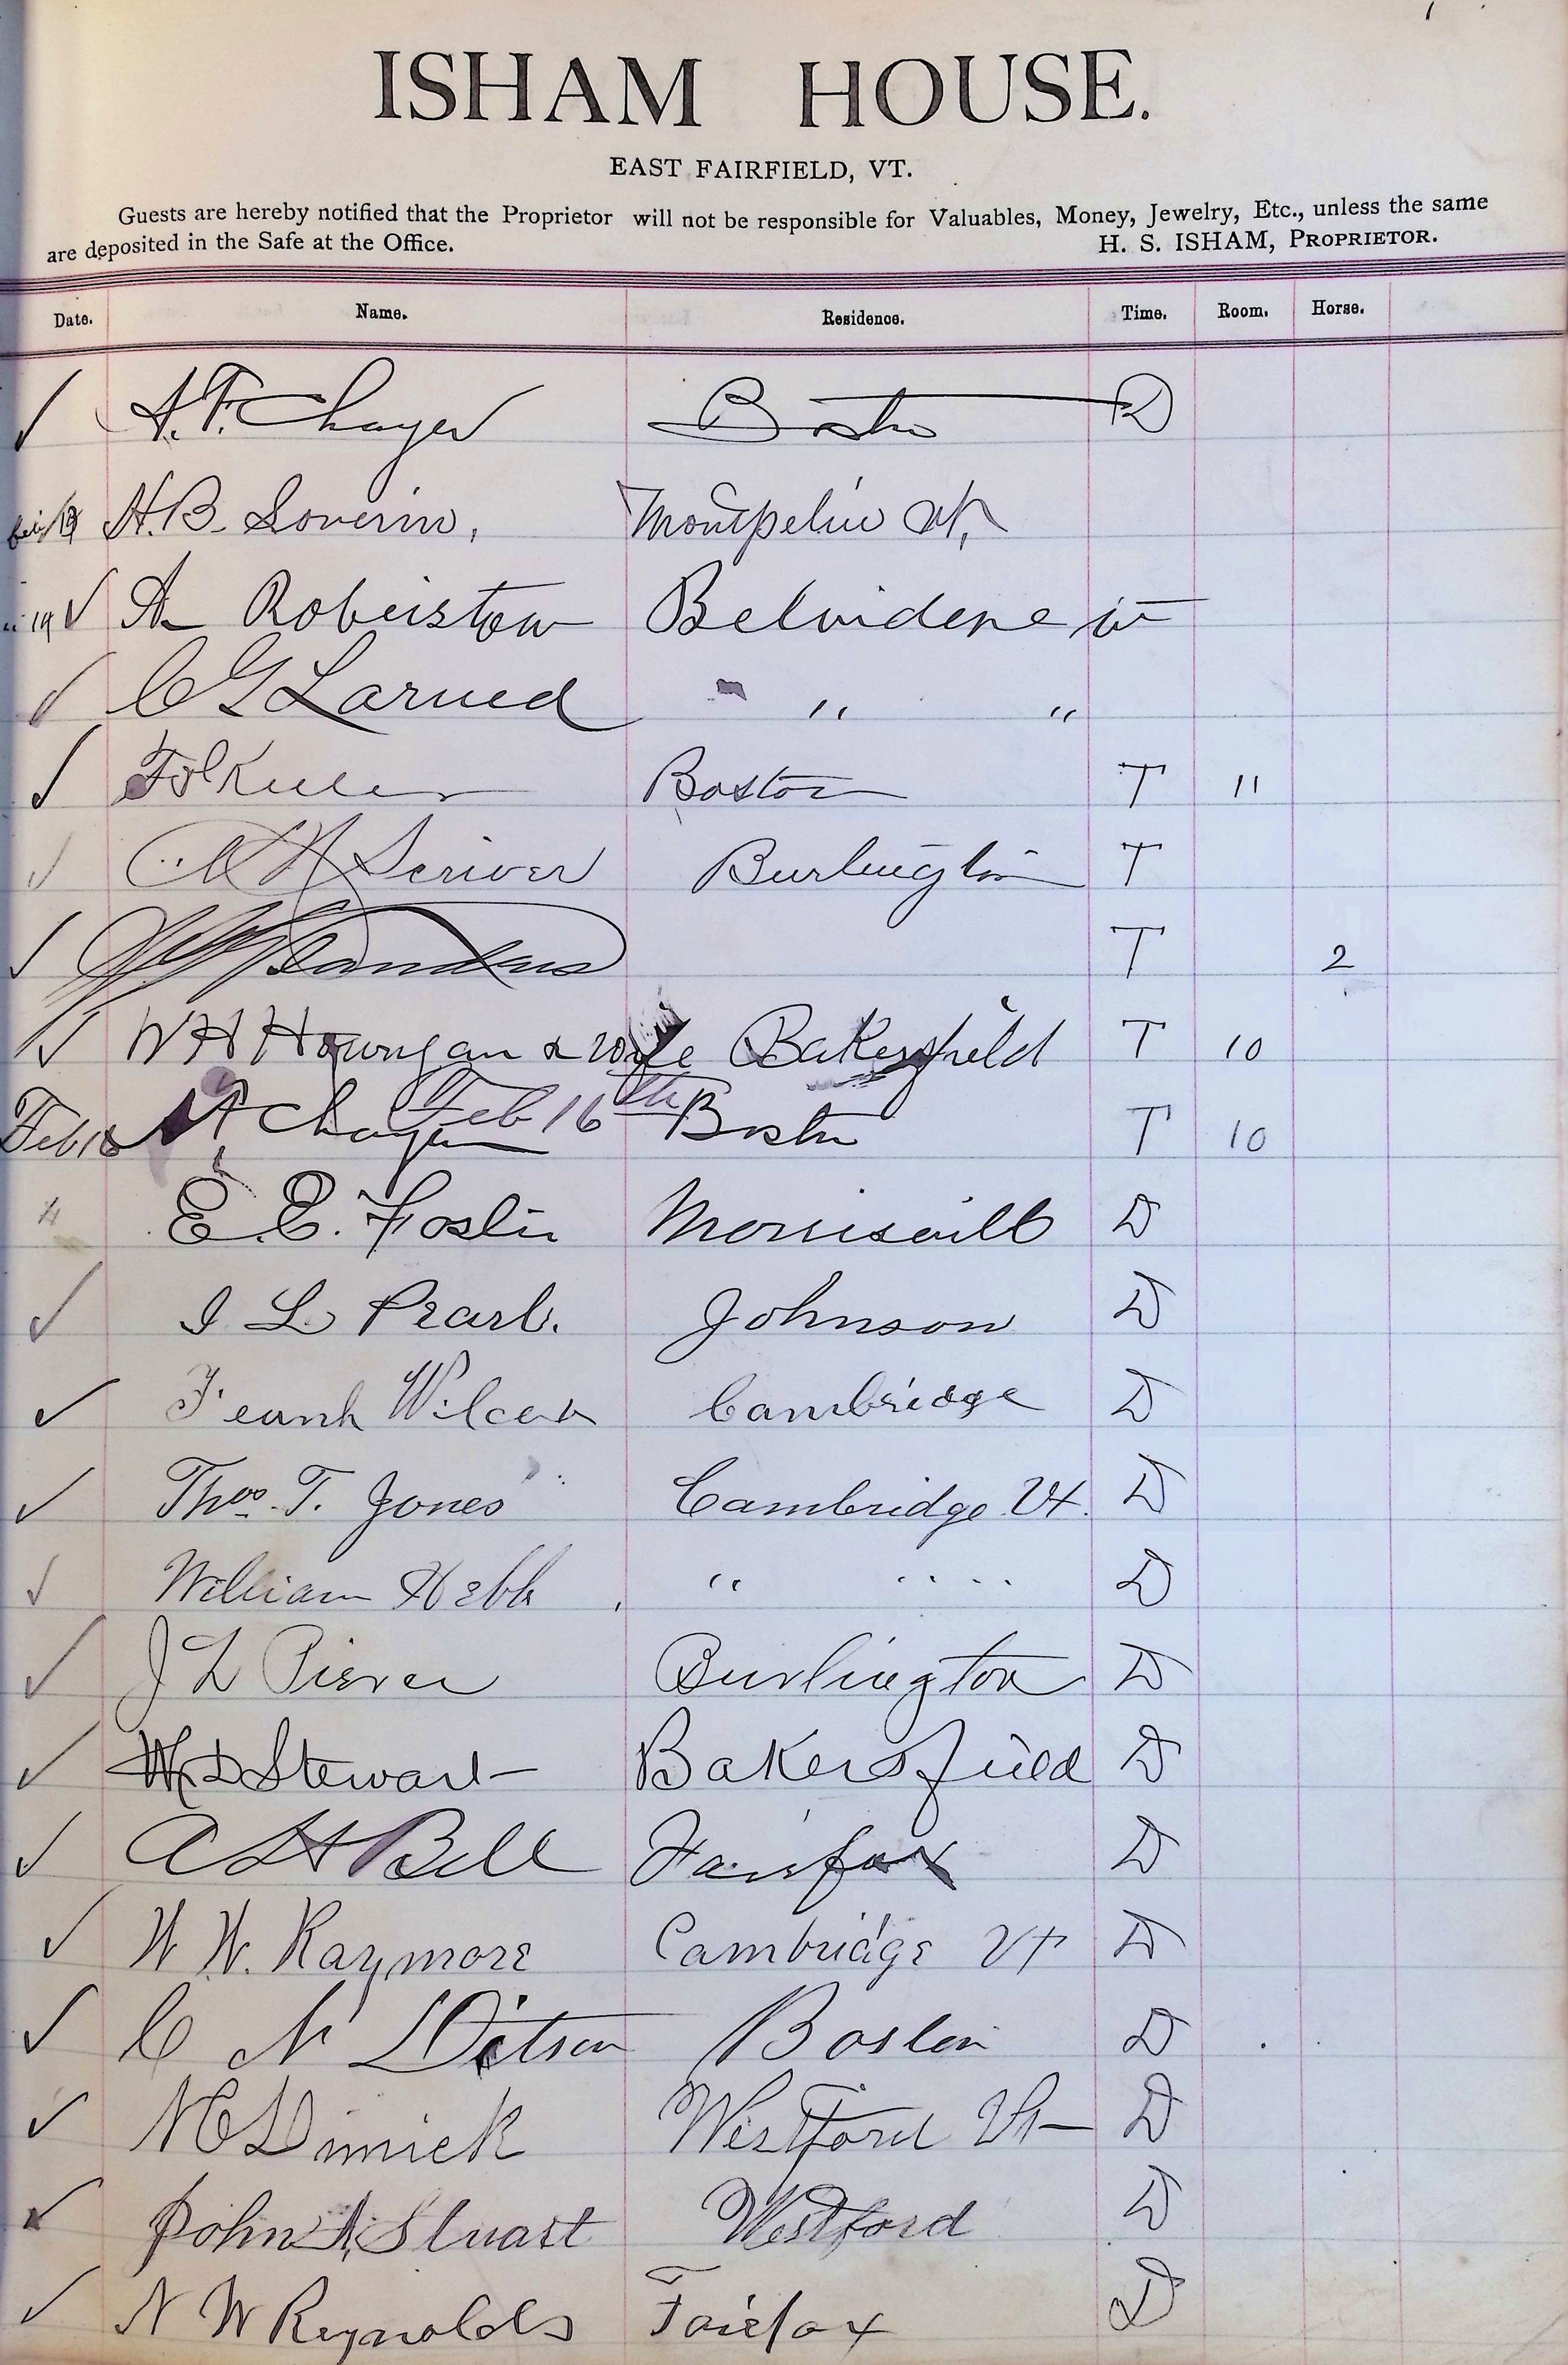 ISHAM HOUSE.
EAST FAIRFIELD, VT.
Guests are hereby notified that the Proprietor will not be responsible for Valuables, Money, Jewelry, Etc., unless the same
are deposited in the Safe at the Office. H. S. ISHAM, PROPRIETOR.
Date. Name. Residence. Time. Room. Horse.
✓ A. F. Chayer Boston D
H. B. Soverin, Montpelier Vt,
" 19 ✓ A Roberstow Belvidere vt
✓ C G Larned " "
✓ Boston T 11
✓ Scriver Burlington T
✓ Sanders T 2
✓ W H & wife Bakersfield T 10
Feb 16th
Feb 16 A F Chayer Boston T 10
" E. E. Foslin Morrisville D
✓ I L Pearl. Johnson D
✓ Frank Wilcox Cambridge D
✓ Thos. T. Jones Cambridge Vt. D
✓ William Hebb " " " D
✓ J L Pierce Burlington D
✓ W D Stewart Bakersfield D
✓ A H Bell Fairfax D
✓ W W. Raymore Cambridge Vt D
✓ C N Ditson Boston D
✓ N C Dimick Westford Vt D
✓ John A. Stuart Westford D
✓ N W Reynolds Fairfax D